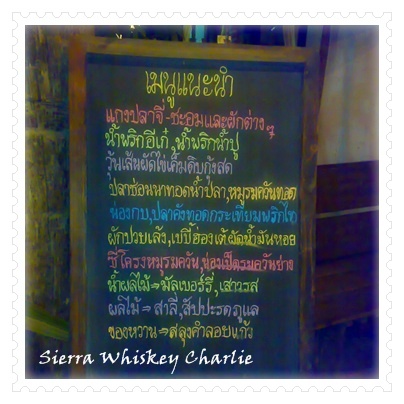 เมนูแนะนำ
แกงปลาจี่-ชะอมและผักต่างๆ
น้ำพริกอีเก๋,น้ำพริกน้ำปู
วุ้นเส้นผัดไข่เค็มดิบกุ้งสด
ปลาช่อนนาทอดน้ำปลา,หมูรมควันทอด
น่องกบ,ปลาคังทอดกระเทียมพริกไท
ผักปวยเล้ง,เบบี้ฮ่องเต้ผัดน้ำมันหอย
ซี่โครงหมูรมควัน,ช่อนเป็ดรมควันย่าง
น้ำผลไม้⇒มัลเบอร์รี่,เสาวรส
ผลไม้⇒สาลี่,สัปปะรดภูแล
ของหวาน⇒สลุงคำลอยแก้ว
Sierra Whiskey Charlie